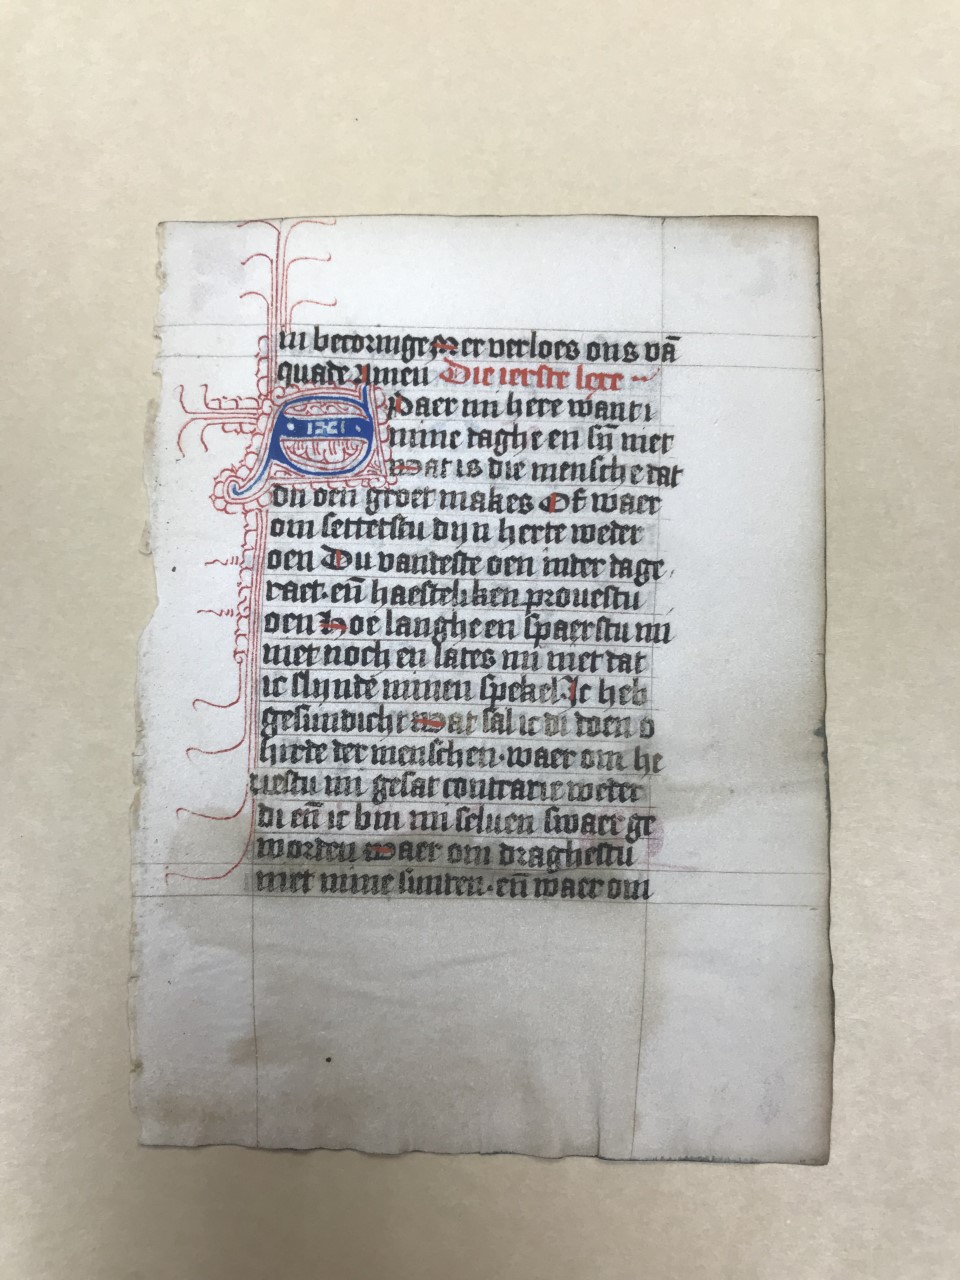 in becoringe Mer verloes ons vā
quade Amen Die ierste lecce
Spaer mi here want i
mine daghe en sijn niet
Wat is die mensche dat
du oen groet makes Of waer
om settetstu dijn herte weder
oen Du vandeste oen inder dage
raet· eñ haesteliken prouestu
oen Hoe langhe en spaerstu mi
niet noch en lates mi niet dat
ic slijnde minen spekel Ic heb
gesundicht Wat sal ic di doen o
hirde der menschen· waer om he
uestu mi gesat contrarie weder
di eñ ic bin mi seluen swaer ge
worden Waer om draghestu
niet mine sunden· eñ waer om